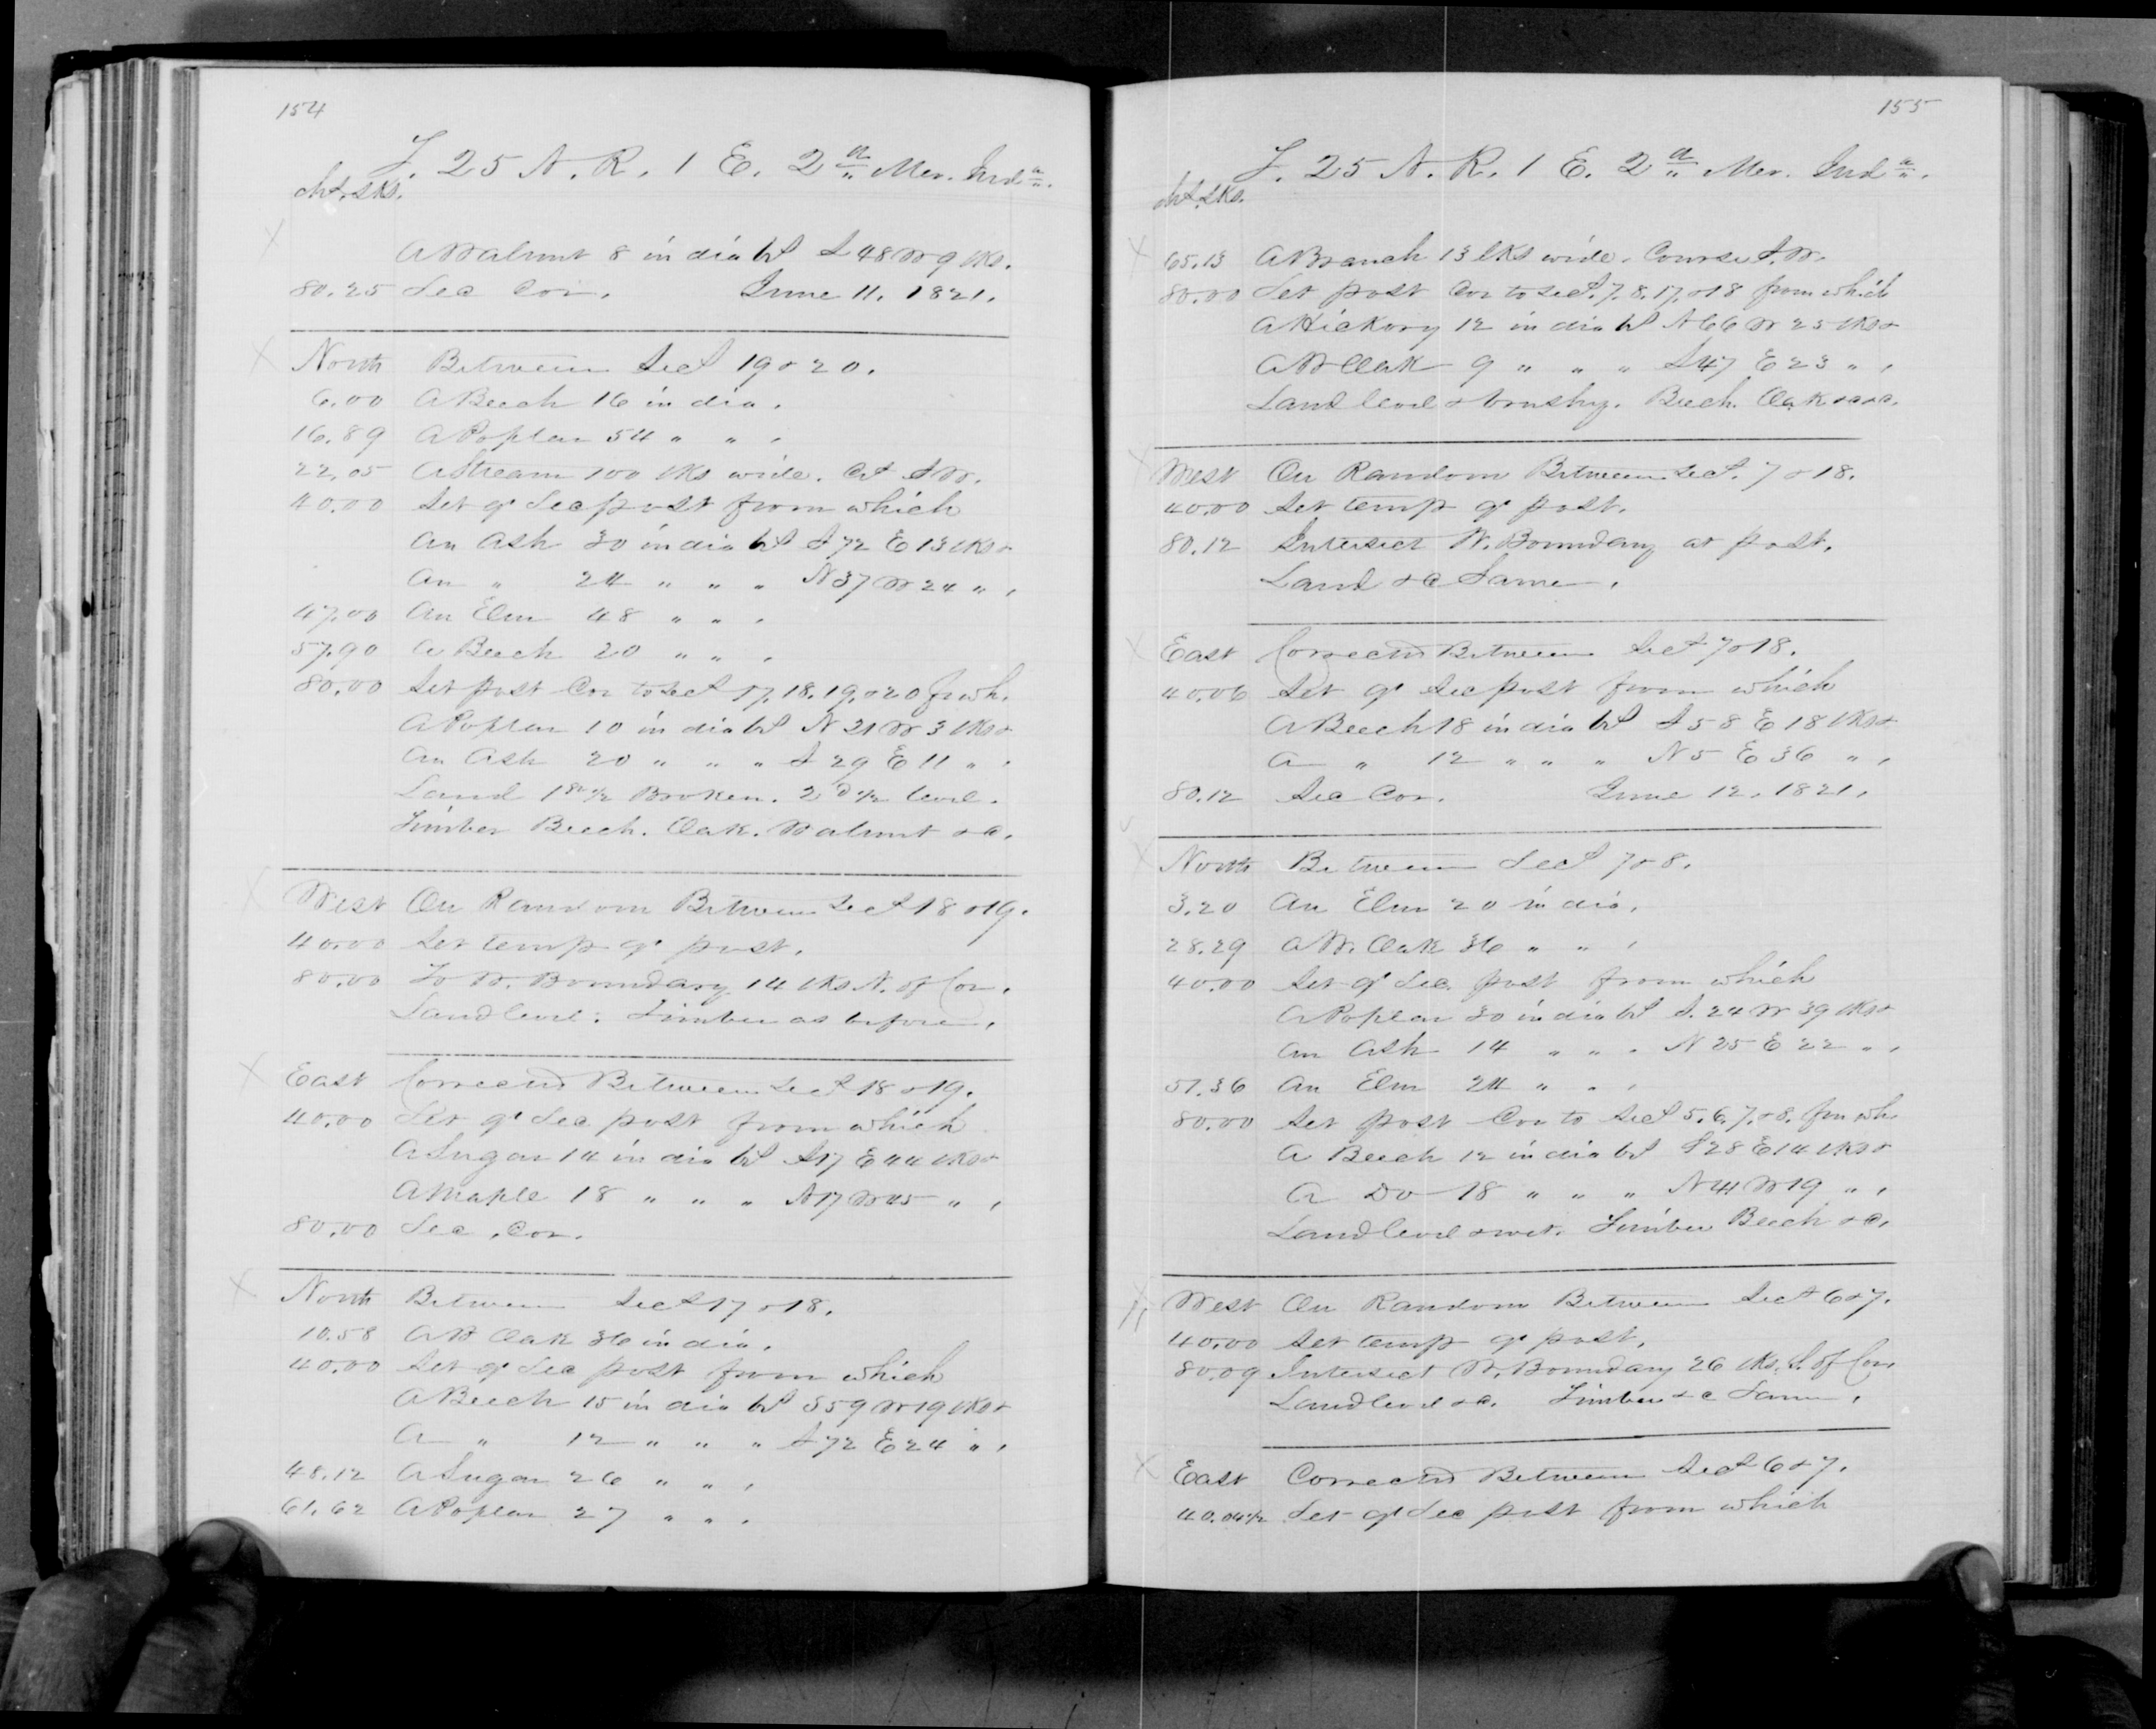 154
T. 25 N. R. 1 E. 2nd Mer. Inda.
chs. lks.
A Walnut 8 in dia brs S 48 W 9 lks.
80.25 Sec Cor. June 11. 1821.
North Between Secs 19 & 20.
6.00 A Beech 16 in dia.
16.89 A Poplar 54 " " .
22.05 A Stream 100 lks wide. Cs S W.
40.00 Set qr Sec post from which
An Ash 30 in dia brs S 72 E 13 lks &
An " 24 " " " N 37 W 24 " .
47.00 An Elm 48 " " .
57.90 A Beech 20 " " .
80.00 Set post Cor to Secs 17. 18. 19. & 20 fr wh.
A Poplar 10 in dia brs N 21 W 3 lks &
An Ash 20 " " " S 29 E 11 " .
Land 1st 1/2 Broken. 2d 1/2 level.
Timber Beech. Oak. Walnut &c.
West On Random Between Secs 18 & 19.
40.00 Set temp qr post.
80.00 To W. Boundary 14 lks N. of Cor.
Land level: Timber as before.
East Corrected Between Secs 18 & 19.
40.00 Set qr Sec post from which
A Sugar 14 in dia brs S 17 E 44 lks &
A Maple 18 " " " N 17 W 45 " .
80.00 Sec. Cor.
North Between Secs 17 & 18.
10.58 A W Oak 36 in dia.
40.00 Set qr Sec post from which
A Beech 15 in dia brs S 59 W 19 lks &
A " 12 " " " S 72 E 24 " .
48.12 A Sugar 26 " " .
61.62 A Poplar 27 " " .
155
T. 25 N. R. 1 E. 2nd Mer. Inda.
chs. lks.
65.13 A Branch 13 lks wide. Course S. W.
80.00 Set post Cor to Secs. 7. 8. 17. & 18 from which
A Hickory 12 in dia brs N 66 W 25 lks &
A W Oak 9 " " " S 47 E 23 " .
Land level & brushy. Beech. Oak &c &c.
West On Random Between Secs. 7 & 18.
40.00 Set temp qr post.
80.12 Intersect W. Boundary at post.
Land &c Same.
East Corrected Between Secs 7 & 18.
40.06 Set qr Sec post from which
A Beech 18 in dia brs S 58 E 18 lks &
A " 12 " " " N 5 E 36 " .
80.12 Sec Cor. June 12. 1821.
North Between Secs 7 & 8.
3.20 An Elm 20 in dia.
28.29 A W. Oak 36 " " .
40.00 Set qr Sec. post from which
A Poplar 30 in dia brs S. 24 W 39 lks &
An Ash 14 " " " N 25 E 22 " .
51.36 An Elm 24 " " .
80.00 Set post Cor to Secs 5. 6. 7. & 8. frm wh
A Beech 12 in dia brs S 28 E 14 lks &
A Do 18 " " " N 41 W 19 " .
Land level & wet. Timber Beech &c.
West On Random Between Secs 6 & 7.
40.00 Set temp qr post.
80.09 Intersect W. Boundary 26 lks. S. of Cor.
Land level &c. Timber &c Same.
East Corrected Between Secs 6 & 7.
40.04 1/2 Set qr Sec post from which